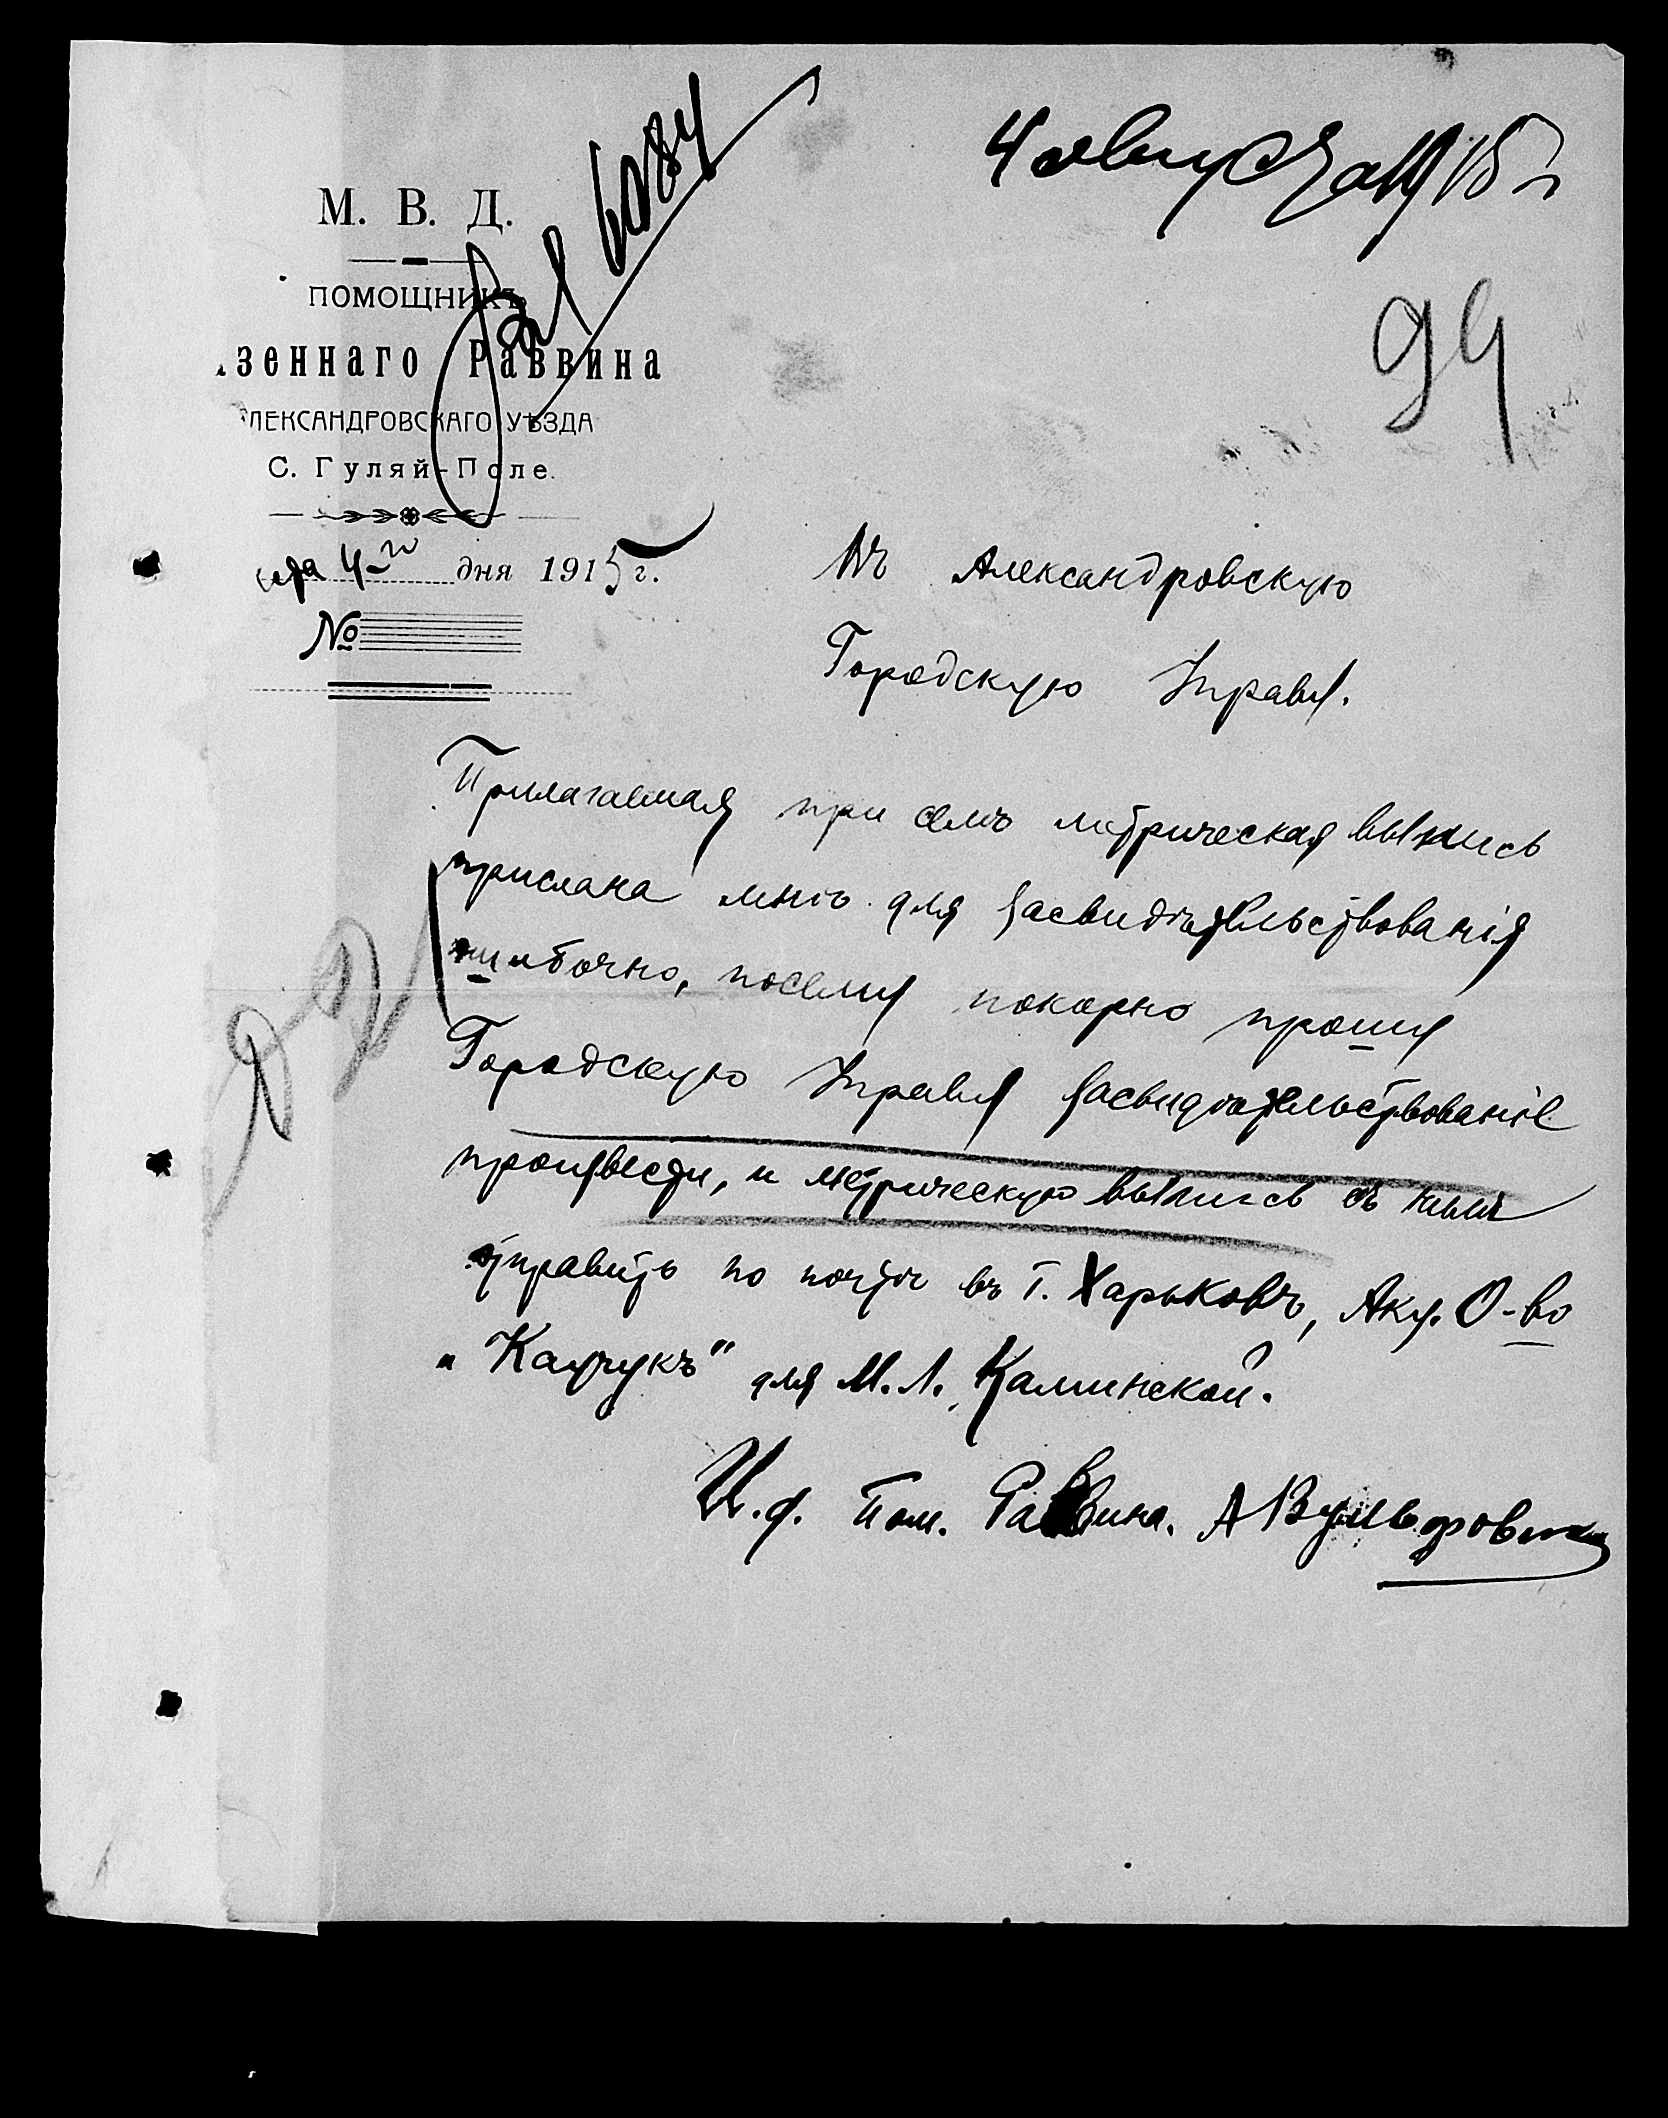 4 августа 1915 г
Вх 6084
94
М. В. Д.
ПОМОЩНИКЪ
зеннаго Раввина
ЛЕКСАНДРОВСКАГО УѢЗДА
С. Гуляй-Поле.
4-го дня 1915 г.
№
Въ Александровскую
Городскую Управу.
Прилагаемая при семъ метрическая выпись
прислана мнѣ для засвидѣтельствованія
ошибочно, посему покорно прошу
Городскую Управу засвидѣтельствованіе
произвести, и метрическую выпись съ нимъ
отправить по почтѣ въ г. Харьковъ, Акц. О-во
„Каучукъ" для М. Л. Каминской.
И. д. Пом. Раввина. А Вульфович